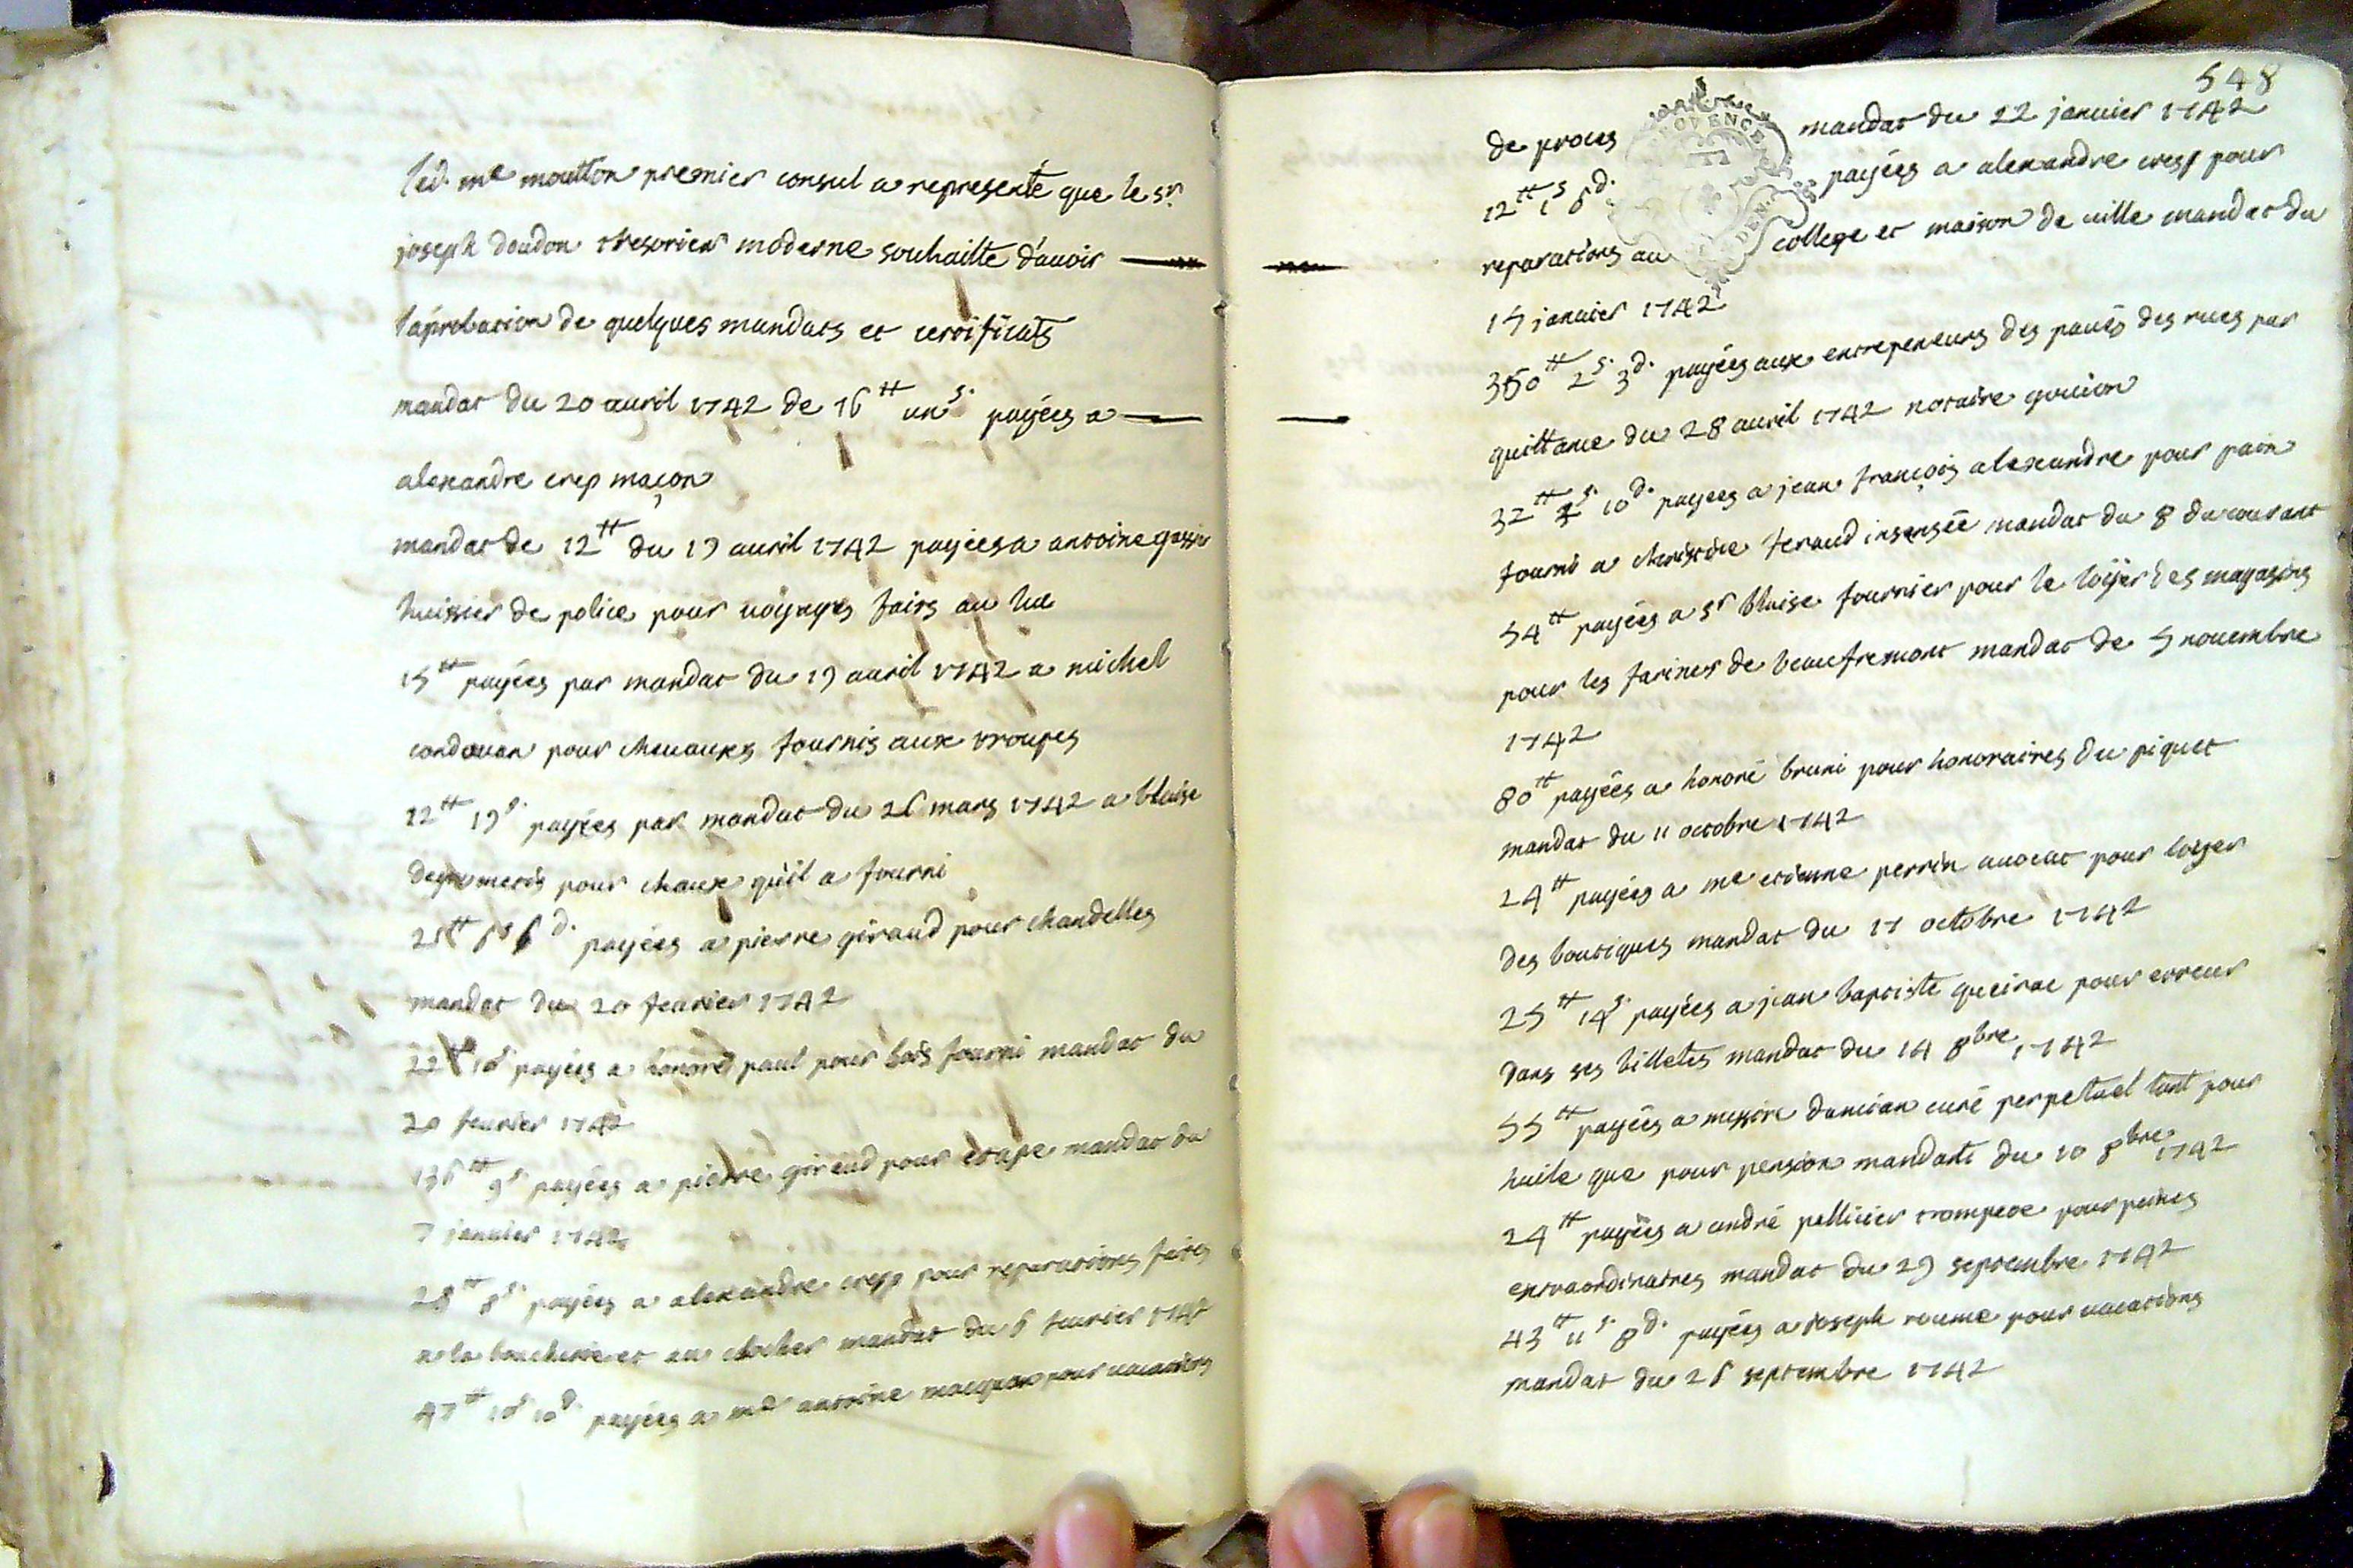 led. me moutton premier consul a representé que le sr.
joseph doudon thresorier moderne souhaitte d'auoir
l'aprobation de quelques mandats et certificats
mandat du 20 auril 1742 de 16tt un s. payées a
alexandre crep maçon
mandat de 12tt du 19 auril 1742 payées a antoine gassier
huissier de police pour uoyages faits au luc
15tt payées par mandat du 19 auril 1742 a michel
condouan pour cheuauxs fournis aux troupes
22tt 19s. payées par mandat du 26 mars 1742 a blaise
pour chaux qu'il a fourni
payées a pierre giraud pour chandelles
mandat du 20 feurier 1742
payées a honoré paul pour bois fourni mandat du
20 feurier 1742
136tt 9s payées a pierre giraud pour etape mandat du
7 januier 1742
28tt 8s. payées a alexandre crep pour reparations faites
a la boucherie et au clocher mandat du 6 feurier 1742
47tt 10s 10d. payées a me antoine pour uacations
548
de proces mandat du 22 januier 1742
12tt 1s 6d. payées a alexandre crep pour
reparations au college et maison de uille mandat du
15 januier 1742
350tt 2s. 3d. payées aux entrepeneurs des paués des rues par
quittance du 28 auril 1742 notaire
32tt s. 10d. payées a jean françois alexandre pour pain
fourni a feraud insensée mandat du 8 du courant
54tt payées a sr blaise fournier pour le loijer des magasins
pour les farines de beaufremont mandat de 5 nouembre
1742
80tt payées a honoré bruni pour honoraires du piquet
mandat du 11 octobre 1742
24tt payées a me etienne perrin auocat pour loijer
des boutiques mandat du 17 octobre 1742
25tt 14s. payées a jean baptiste queirac pour erreur
dans ses billetes mandat du 14 8bre 1742
55tt payées a messire damian curé perpetuel tant pour
huile que pour pension mandats du 10 8bre 1742
24tt payées a andré pellicier trompete pour peines
extraordinaires mandat du 29 septembre 1742
43tt 11s. 8d. payées a joseph roume pour uacations
mandat du 26 septembre 1742